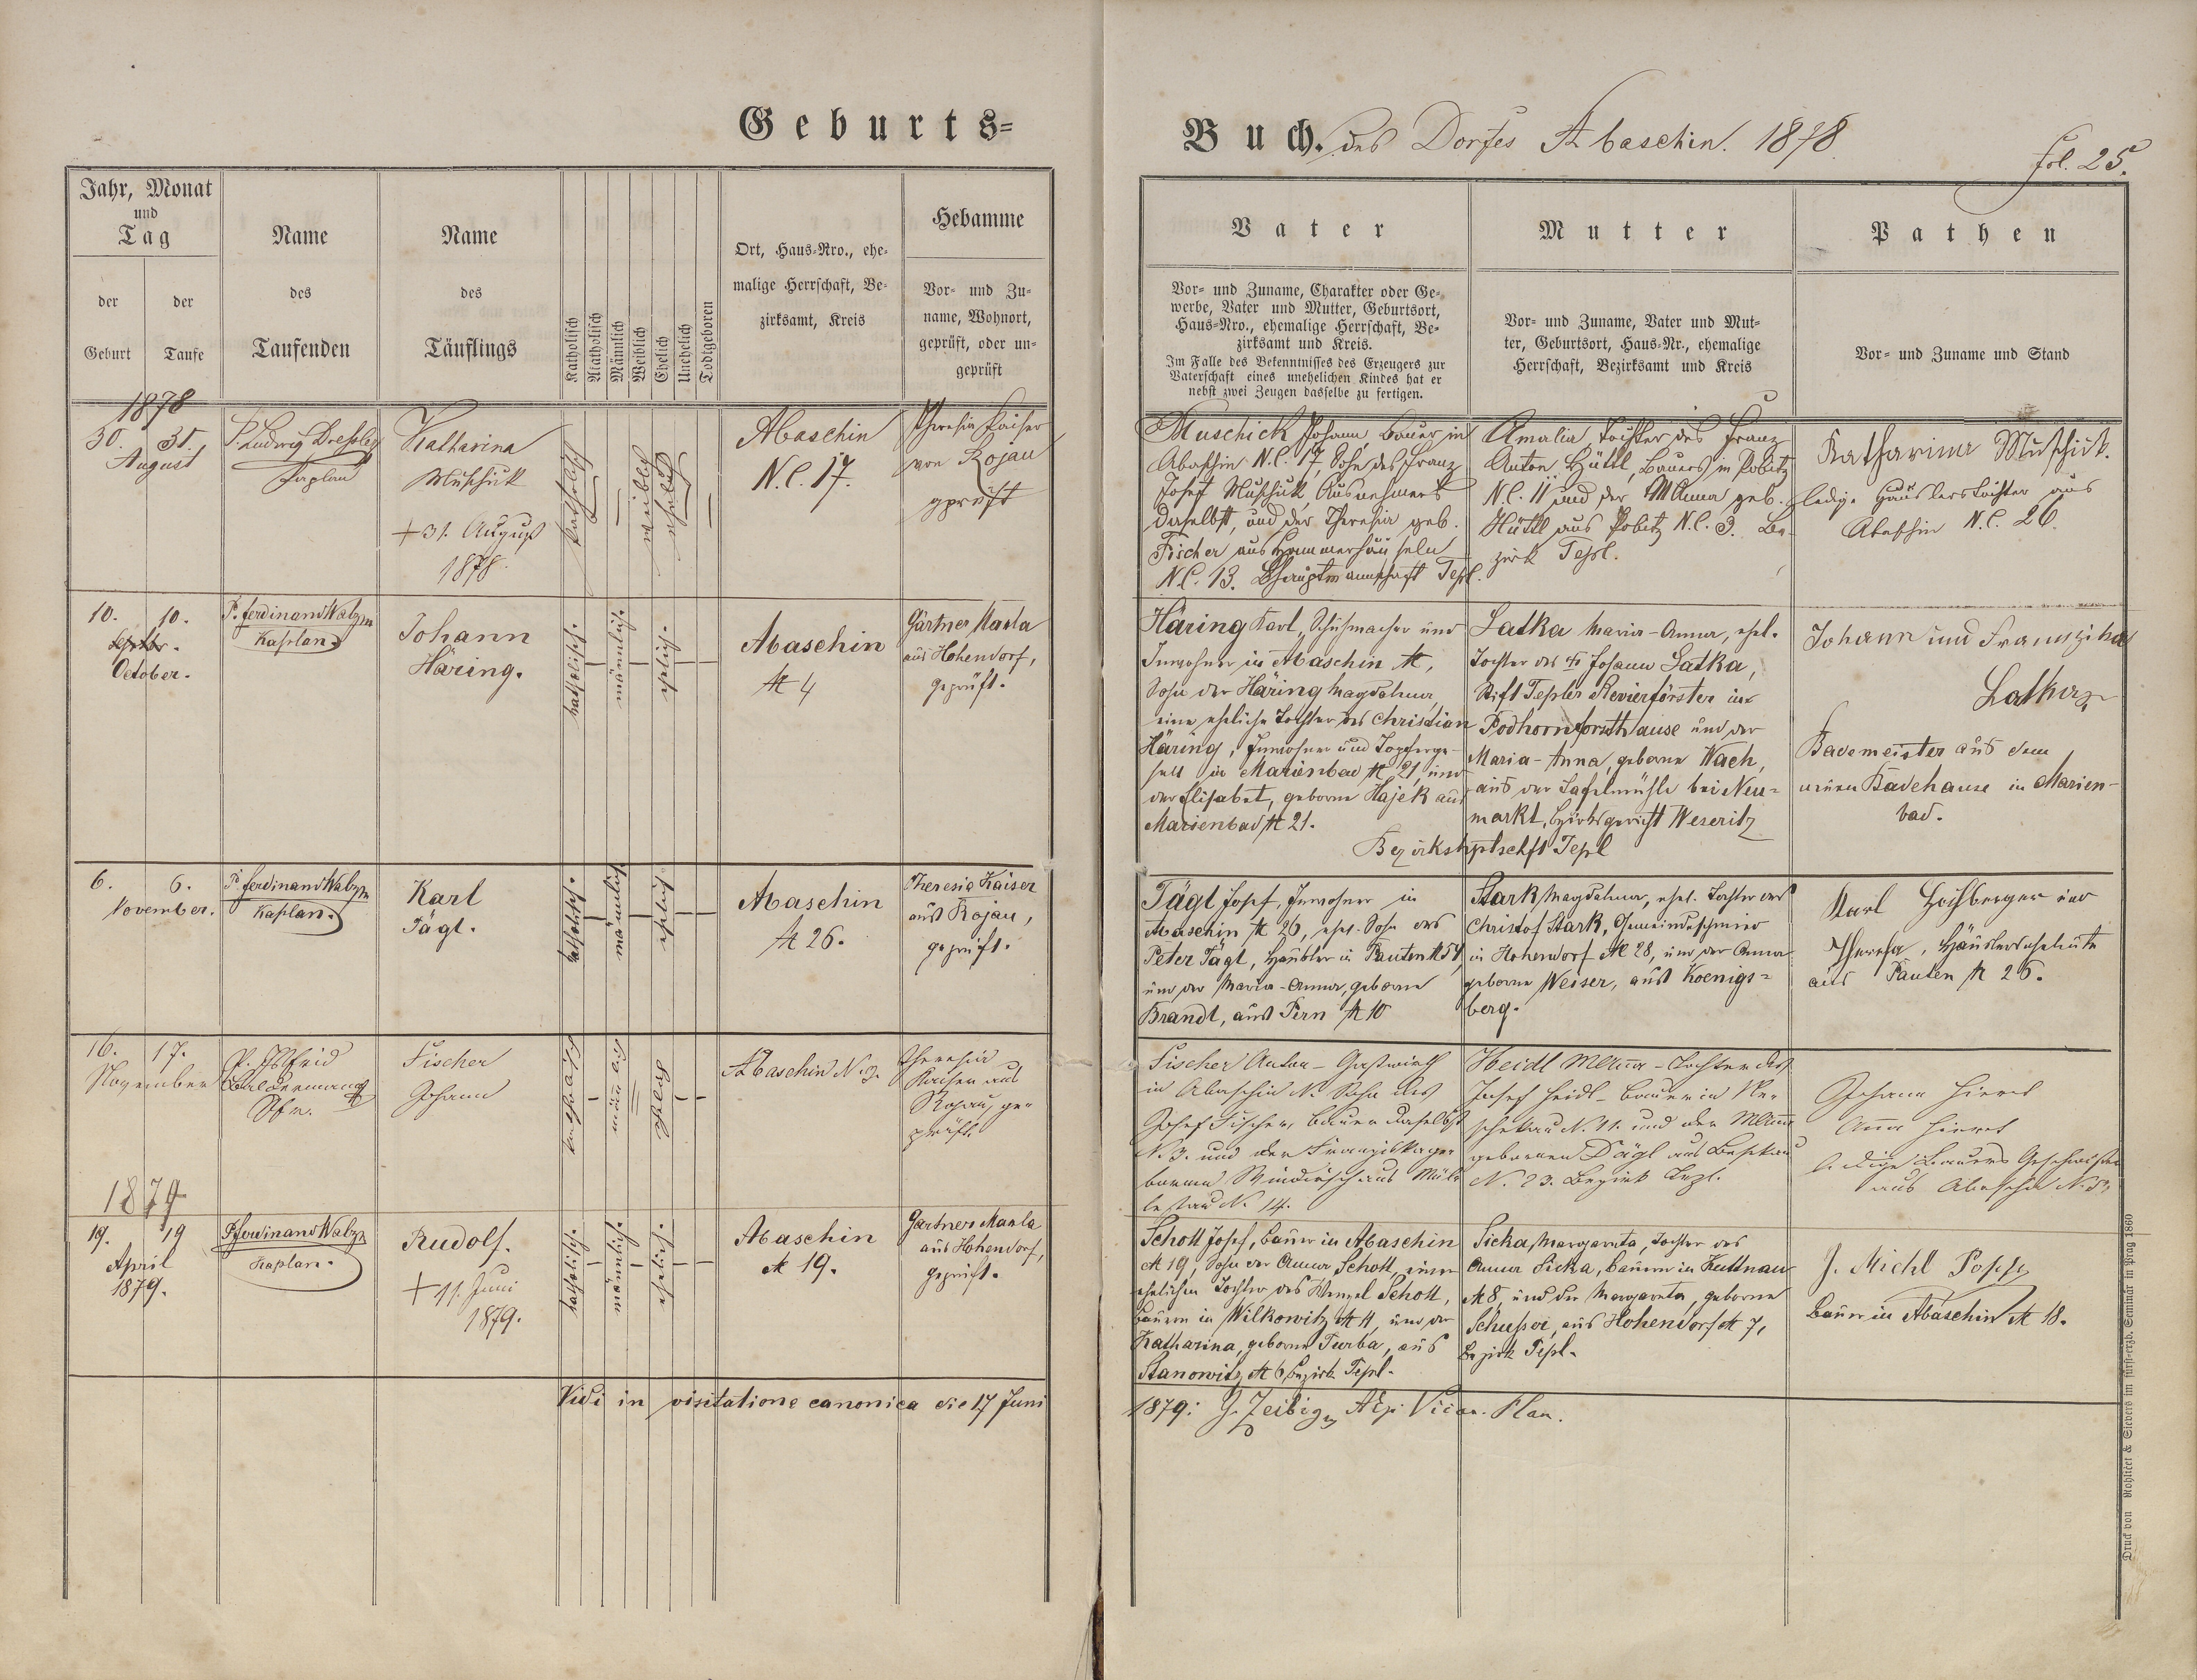 Geburts=
Buch. des Dorfes Abaschin. 1878.
fol. 25.
Jahr, Monat
und
Tag
der
Geburt
der
Taufe
Name
des
Taufenden
Name
des
Täuflings
Katholisch
Akatholisch
Männlich
Weiblich
Ehelich
Unehelich
Todtgeboren
Ort, Haus-Nro., ehe-
malige Herrschaft, Be-
zirksamt, Kreis
Hebamme
Vor- und Zu-
name, Wohnort,
geprüft, oder un-
geprüft
Vater
Vor- und Zuname, Charakter oder Ge-
werbe, Vater und Mutter, Geburtsort,
Haus-Nro., ehemalige Herrschaft, Be-
zirksamt und Kreis.
Im Falle des Bekenntnisses des Erzeugers zur
Vaterschaft eines unehelichen Kindes hat er
nebst zwei Zeugen dasselbe zu fertigen.
Mutter
Vor- und Zuname, Vater und Mut-
ter, Geburtsort, Haus-Nr., ehemalige
Herrschaft, Bezirksamt und Kreis
Pathen
Vor- und Zuname und Stand
1878
30. 31.
August
P. Ludwig Dressler
Kaplan
Katharina
Muschick
+ 31. August
1878.
katholisch
weiblich
ehelich
Abaschin
N.C. 17.
Theresia Kaiser
von Rojau
geprüft
Muschick Johann, Bauer in
Abaschin N.C. 17, Sohn des Franz
Josef Muschick, Ausnehmers
daselbst, und der Theresia geb.
Fischer aus Hammerhäuseln
N.C. 13. Bhauptmannschaft Tepl.
Amalia, Tochter des Franz
Anton Hüttl, Bauers in Pobitz
N.C. 11 und der MAnna geb.
Hüttl aus Pobitz N.C. 3. Be-
zirk Tepl.
Katharina Muschick.
ledige Häuslerstochter aus
Abaschin N.C. 26.
10. 10.
October.
P. Ferdinand Walzm
Kaplan.
Johann
Häring.
katholisch.
männlich.
ehelich.
Abaschin
№ 4
Gärtner Maria
aus Hohendorf,
geprüft.
Häring Karl, Schuhmacher und
Inwohner in Abaschin №,
Sohn der Häring Magdalena,
eine eheliche Tochter des Christian
Häring, Inwohner und Töpferge-
sell in Marienbad № 21, und
der Elisabet, geborne Hajek aus
Marienbad № 21.
Latka Maria-Anna, ehel.
Tochter des Johann Latka,
Stift Tepler Revierförster im
Podhornforsthause und der
Maria-Anna, geborne Wach,
aus der Tafelmühle bei Neu=
markt, Bezirksgericht Weseritz
Bezirkshptschft Tepl
Johann und Franziska
Latka,
Bademeister aus dem
neuen Badehause in Marien-
bad.
6. 6.
November.
P. Ferdinand Walzm
Kaplan.
Karl
Tägl.
katholisch.
männlich.
ehelich.
Abaschin
№ 26.
Theresia Kaiser
aus Rojau,
geprüft.
Tägl Josef, Inwohner in
Abaschin № 26, ehel. Sohn des
Peter Tägl, Häusler in Pauten № 54,
und der Maria-Anna, geborne
Brandl, aus Pern № 10
Stark Magdalena, ehel. Tochter des
Christof Stark, Gemeindeschmied
in Hohendorf № 28, und der Anna
geborne Weiser, aus Koenigs=
berg.
Karl Hochberger und
Theresia, Häuslerseheleute
aus Pauten № 26.
16. 17.
November
Fischer
Johann
katholisch
männlich
ehelich
Abaschin N. 3.
Theresia
Kaiser aus
Rojau, ge-
prüft.
Fischer Anton - Gastwirth
in Abaschin N. Sohn des
Josef Fischer, Bauer daselbst
N. 3. und der Franziska ge-
bornen Windirsch aus Müh-
lestau N. 14.
Heidl MAnna - Tochter des
Josef Heidl - Bauer in Ple-
schekau N. 11. und der MAnna
gebornen Dägl aus Beschkau
N. 23. Bezirk Tepl.
Johann Hieret
Anna Hieret
ledige Bauers Geschwister
aus Abaschin N. 5.
1879
19. 19
April
1879.
P. Ferdinand Walzm
Kaplan.
Rudolf.
+ 11. Juni
1879.
katholisch.
männlich.
ehelich.
Abaschin
№ 19.
Gärtner Maria
aus Hohendorf,
geprüft.
Schott Josef, Bauer in Abaschin
№ 19, Sohn der Anna Schott, einer
ehelichen Tochter des Wenzel Schott,
Bauern in Wilkowitz № 4, und der
Katharina, geborne Turba, aus
Stanowitz № 6 Bezirk Tepl.
Sicka, Margareta, Tochter des
Anna Sicka, Bauern in Kuttnau
№ 8, und der Margareta, geborne
aus Hohendorf № 7,
Bezirk Tepl.
J. Michl Popp,
Bauer in Abaschin № 18.
Vidi in visitatione canonica die 17 Juni
1879: J. Zeibig, Vicar. Plan.
Druck von Rohliček & Sievers im fürst-erzb. Seminär in Prag 1860